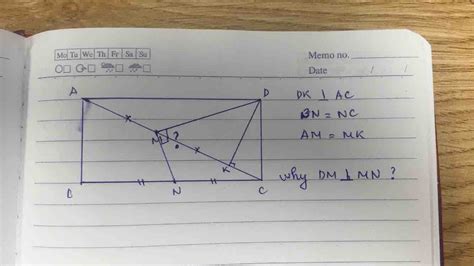 Mo Tu We Th Fr Sa Su
Memo no.
Date / /
A
D
DK ⊥ AC
BN = NC
AM = MK
M
?
K
B
N
C
why DM ⊥ MN ?